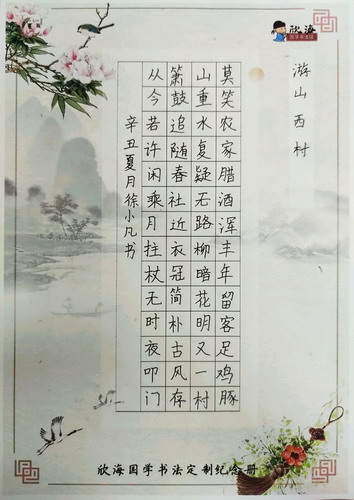 游山西村
莫笑农家腊酒浑丰年留客足鸡豚
山重水复疑无路柳暗花明又一村
箫鼓追随春社近衣冠简朴古风存
从今若许闲乘月拄杖无时夜叩门
辛丑夏月徐小凡书
欣海
国学书法馆
欣海国学书法定制纪念册